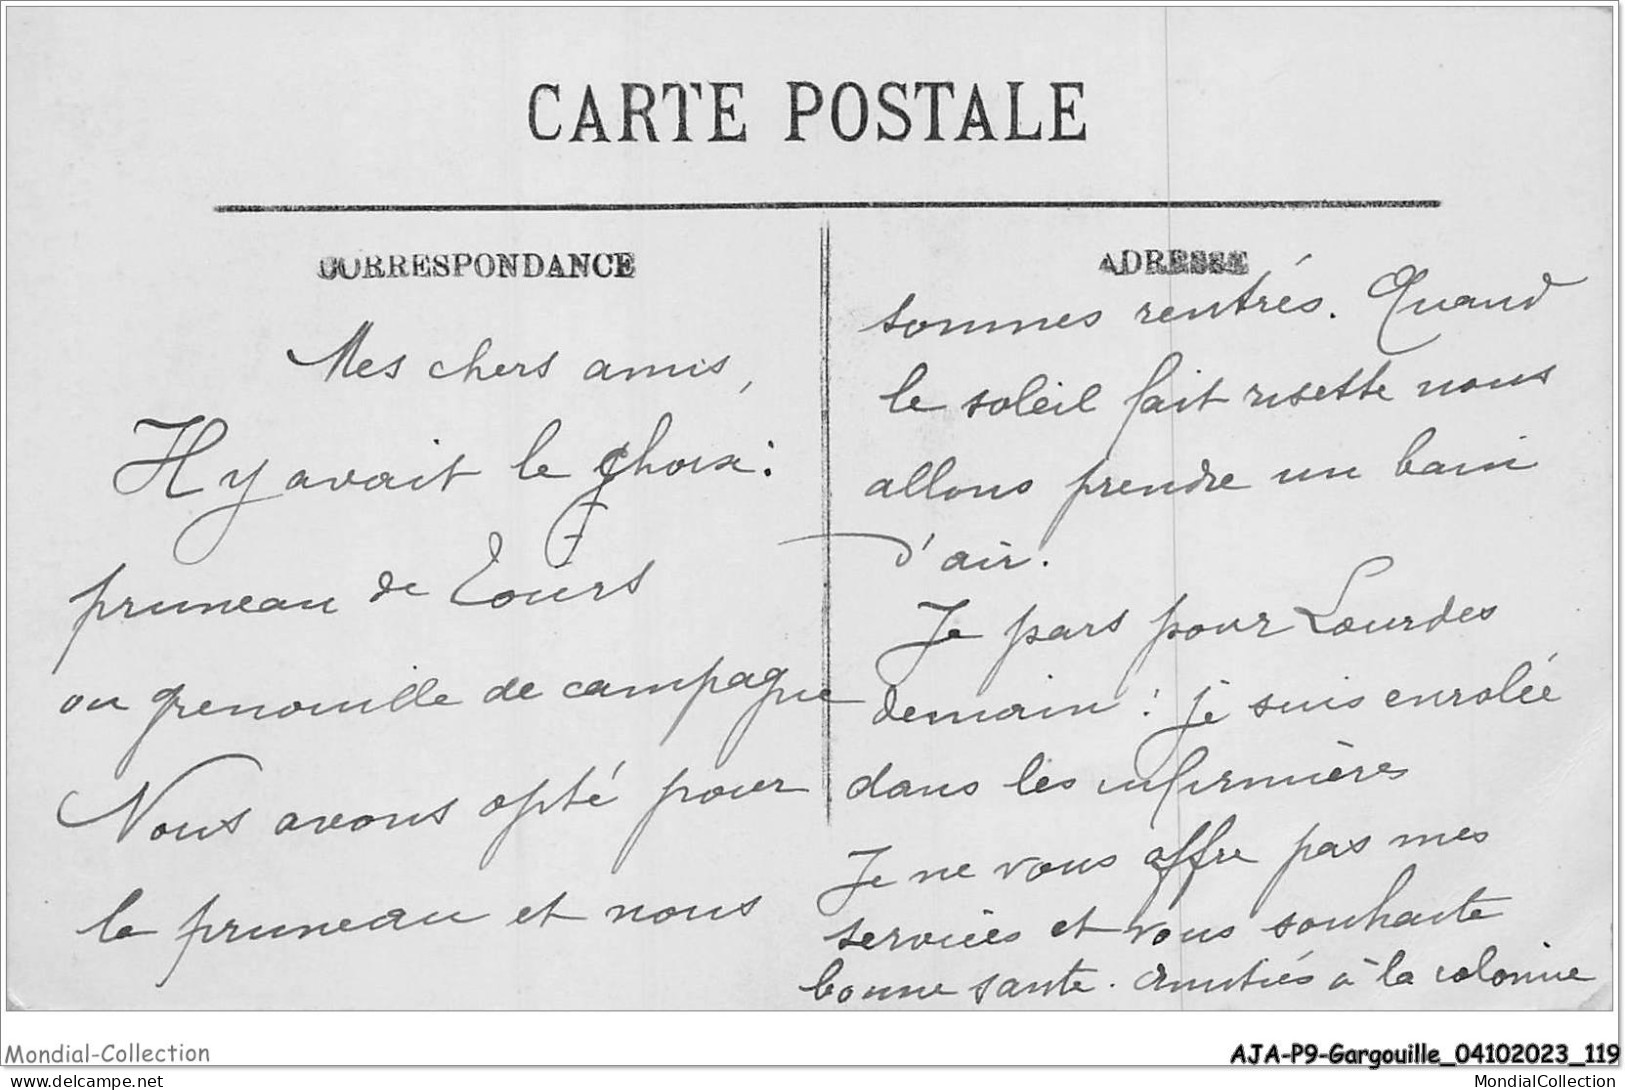 CARTE POSTALE
CORRESPONDANCE
Mes chers amis,
Il y avait le choix :
pruneau de Tours
ou grenouille de campagne
Nous avons opté pour
le pruneau et nous
ADRESSE
sommes rentrés. Quand
le soleil fait risette nous
allons prendre un bain
d'air.
Je pars pour Lourdes
demain : je suis enrolée
dans les infirmières
Je ne vous offre pas mes
services et vous souhaite
bonne santé. Amitiés à la colonie
Mondial-Collection
AJA-P9-Gargouille_04102023_119
delcampe.net
MondialCollection